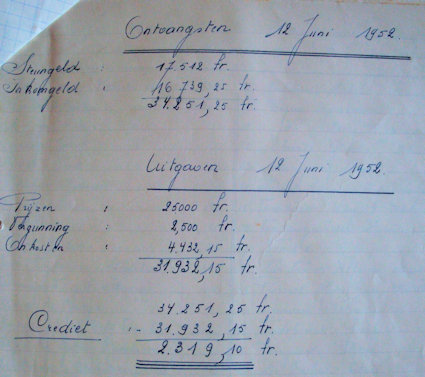 Ontvangsten 12 Juni 1952.
Steungeld : 17.512 fr.
Inkomgeld : 16 739,25 fr.
34.251,25 fr.
Uitgaven 12 Juni 1952.
Prijzen : 25000 fr.
Vergunning : 2,500 fr.
Onkosten : 4.432,15 fr.
31.932,15 fr.
34.251,25 fr.
Crediet :- 31.932,15 fr.
2.319,10 fr.